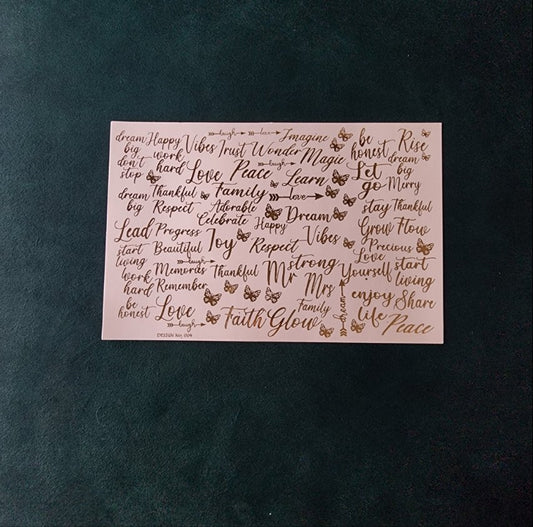 dream big don't stop
Happy
Vibes
laugh
love
Imagine
be honest
Rise
work hard
Trust Wonder Magic
dream big
Love
Peace
laugh
Learn
Let go
Merry
dream big
Thankful
Family
love
stay
Thankful
Respect
Adorable
Celebrate
Happy
Dream
Grow Flow
Lead
Progress
Joy
Respect
Vibes
Precious
start living
Beautiful
laugh
Love Yourself
start living
work hard
Memories
Thankful
Mr
strong
Mrs
Remember
enjoy life
Share
be honest
Love
laugh
Faith Glow
Family
dream
Peace